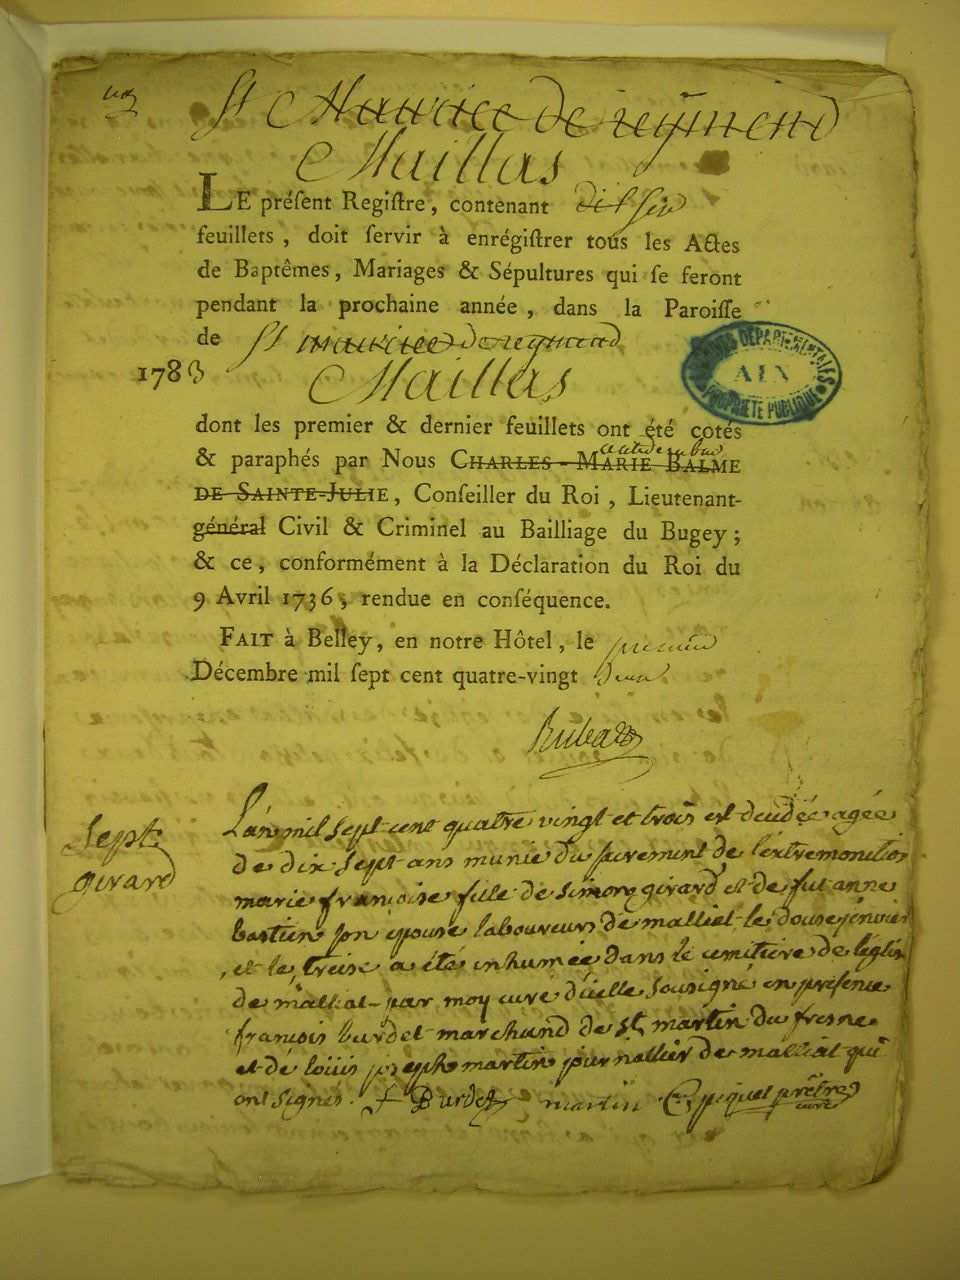 St Maurice de reymend
Maillas
LE préſent Regiſtre, contenant dix ſix
feuillets, doit ſervir à enrégiſtrer tous les Actes
de Baptêmes, Mariages & Sépultures qui ſe feront
pendant la prochaine année, dans la Paroiſſe
de St maurice de reymend
1783 Maillas
ARCHIVES DÉPARTEMENTALES
AIN
PROPRIÉTÉ PUBLIQUE
dont les premier & dernier feuillets ont été cotés
& paraphés par Nous CHARLES-MARIE BALME
DE SAINTE-JULIE, Conſeiller du Roi, Lieutenant-
général Civil & Criminel au Bailliage du Bugey;
& ce, conformément à la Déclaration du Roi du
9 Avril 1736, rendue en conſéquence.
FAIT à Belley, en notre Hôtel, le premier
Décembre mil ſept cent quatre-vingt deux
Rubat
Sept.
girard
L'an mil sept cent quatre vingt et trois est decédée agée
de dix sept ans munie du sacrement de l'extremonction
marie françoise fille de simon girard et de fut anne
bastien son epouse laboureurs de malliat le douse jenvier
, et le treise a été inhumée dans le cemitiere de leglise
de malliat par moy curé d'icelle sousigné en présence
françois burdet marchand de st martin du fresne
et de louis joseph martin journallier de malliat qui
ont signés. f Burdet martin C piquet prêtre
curé